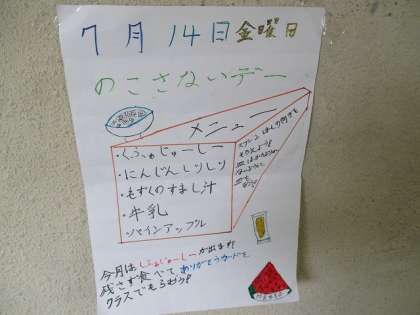 7月14日金曜日
のこさないデー
メニュー
・くふぁじゅーしー
・にんじんしりしり
・もずくのすまし汁
・牛乳
・パインアップル
今月は くふぁじゅーしーが出ます!
残さず食べて ありがとうカードを
クラスでもらおう!